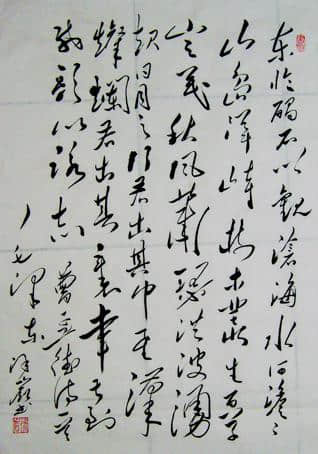 东临碣石以觀滄海水何澹々
山岛竦峙树木丛生百草
丰茂秋风萧瑟洪波湧
起日月之行若出其中星漢
燦爛若出其裏幸甚至
哉歌以咏志 曹孟德诗
毛泽东